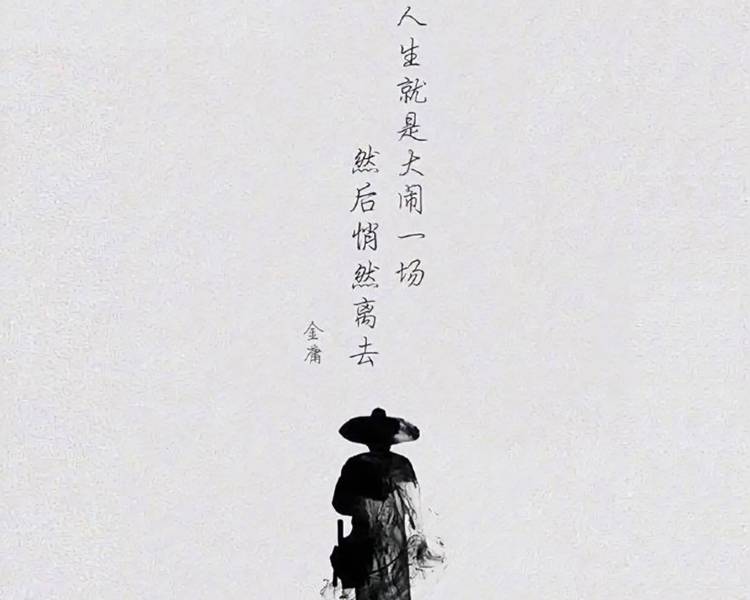 人生就是大闹一场
然后悄然离去
金庸